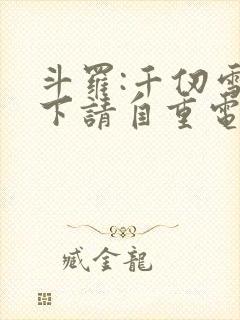 斗羅:千仞雪
下請自重電
臧金龍